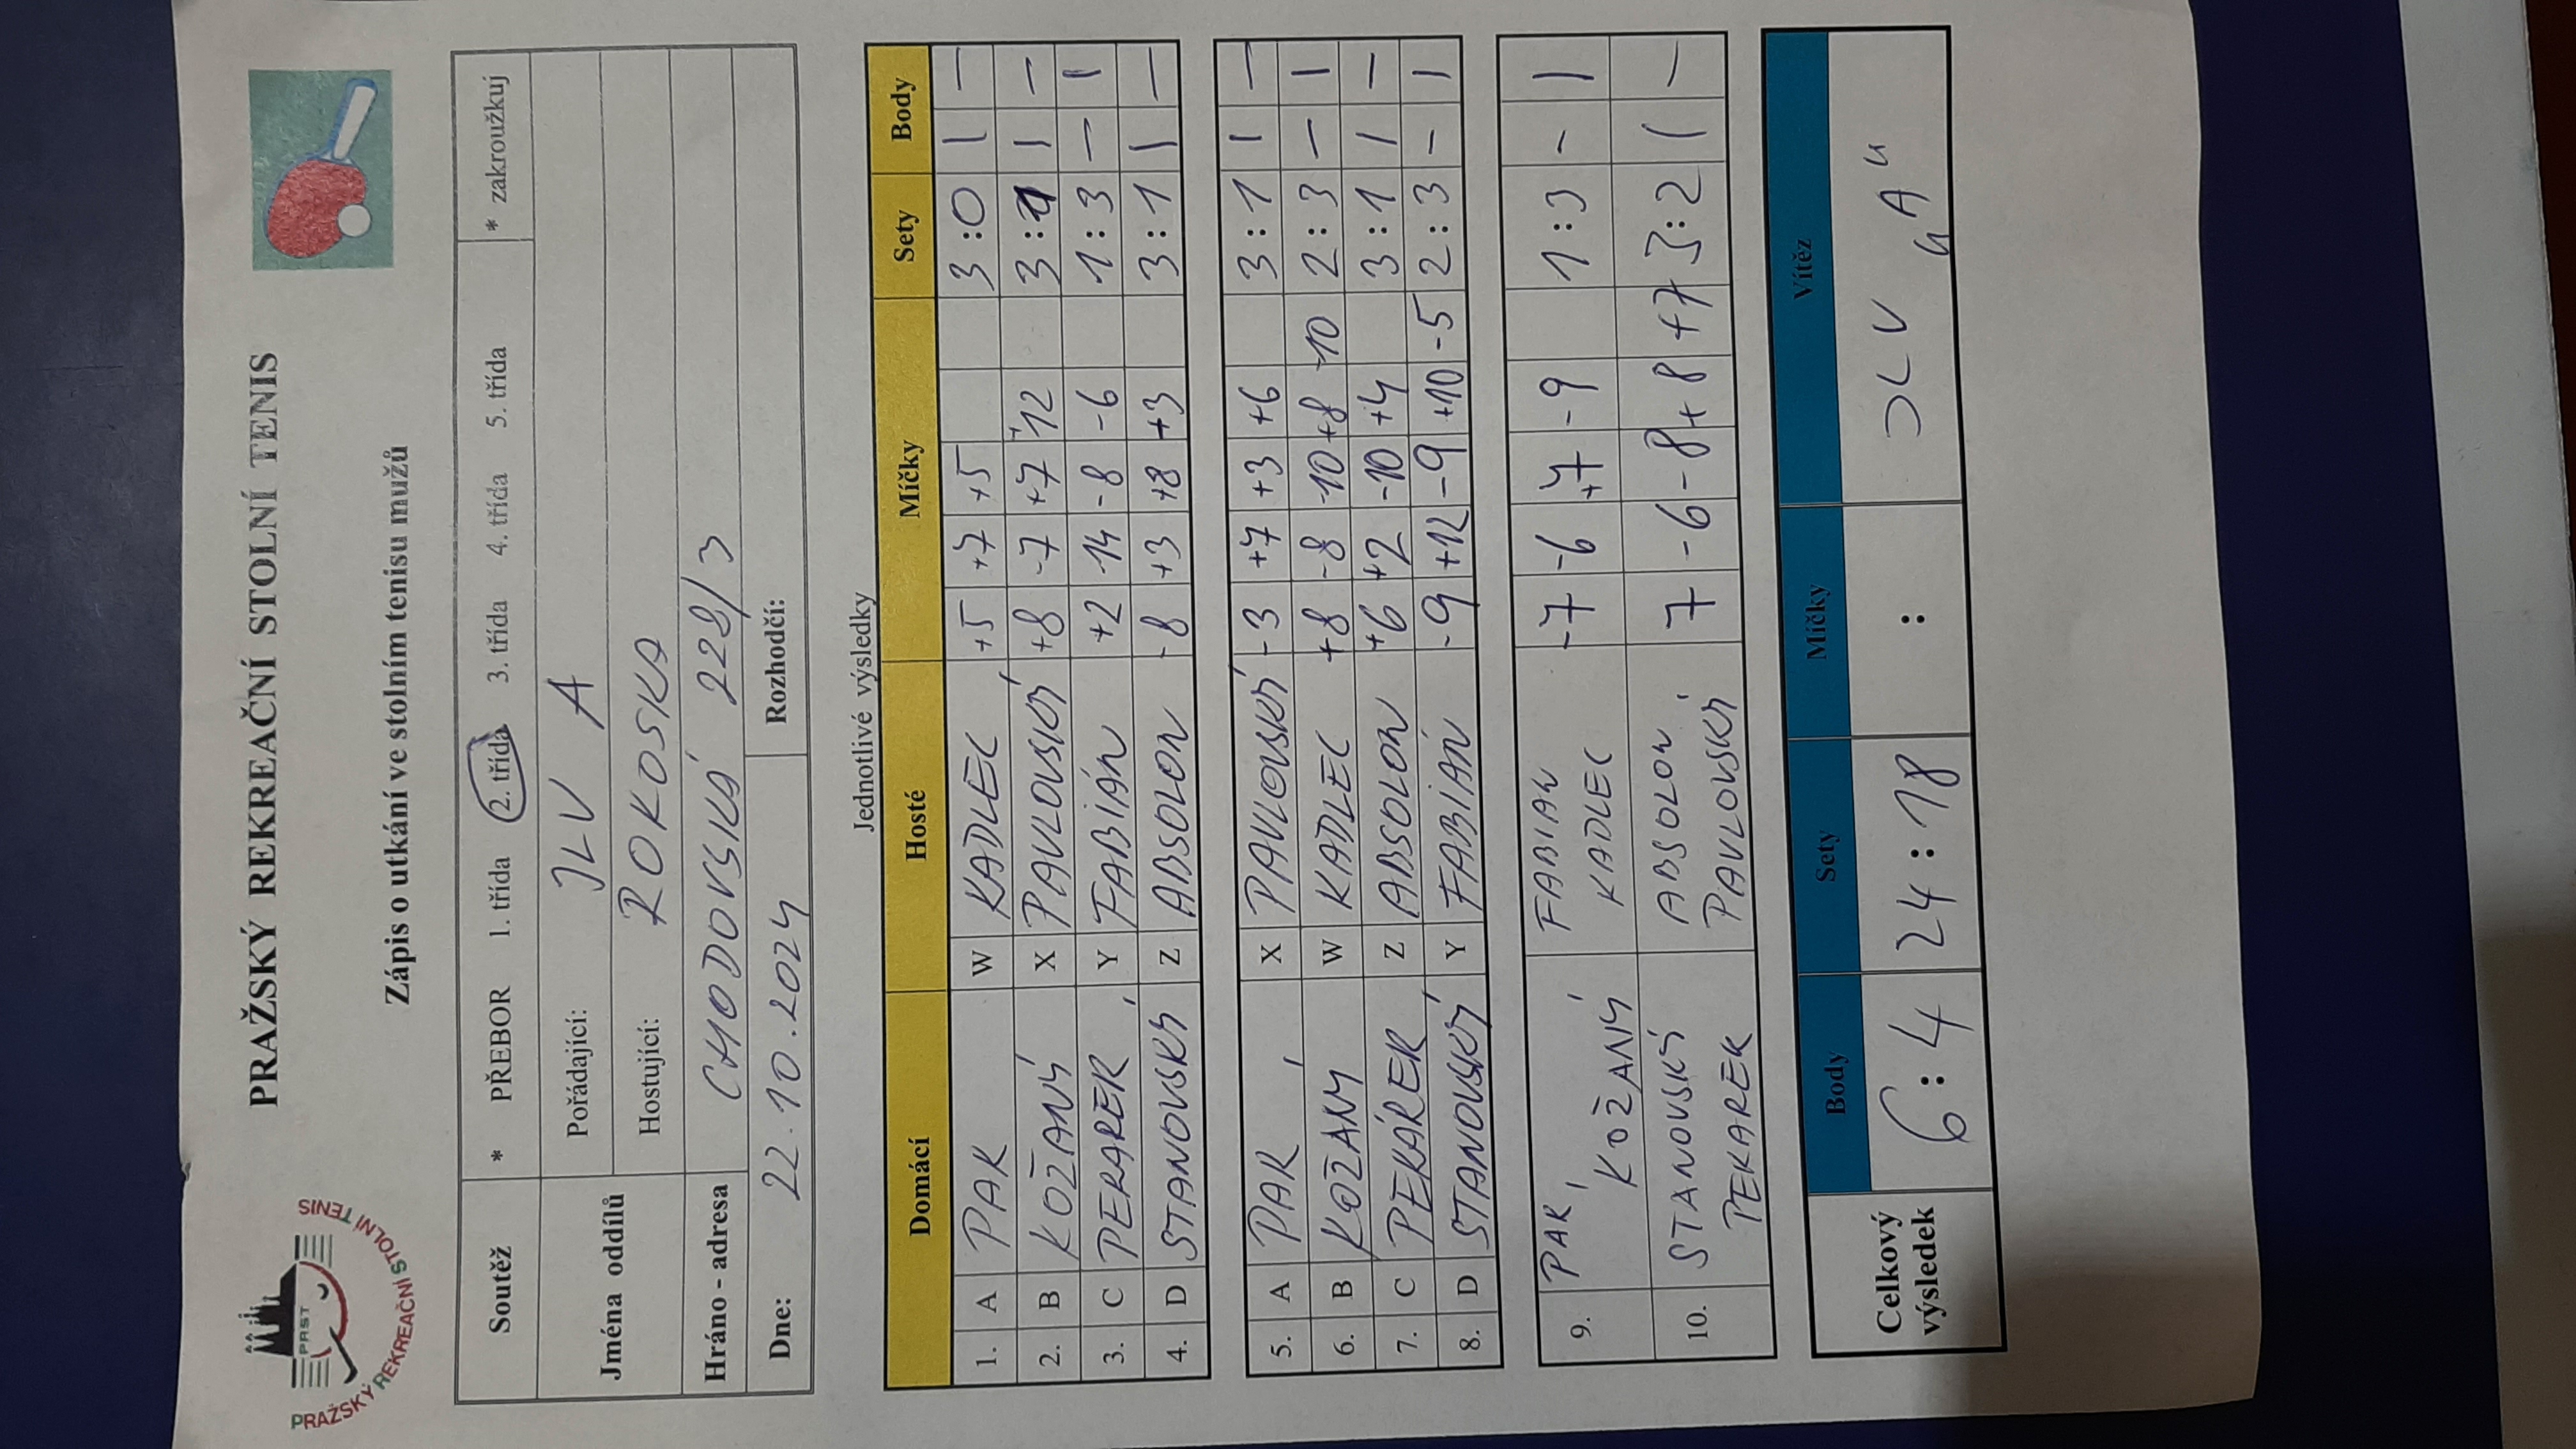 PRAŽSKÝ REKREAČNÍ STOLNÍ TENIS
PRST
PRAŽSKÝ REKREAČNÍ STOLNÍ TENIS
Zápis o utkání ve stolním tenisu mužů
Soutěž * PŘEBOR 1. třída 2. třída 3. třída 4. třída 5. třída * zakroužkuj
Jména oddílů Pořádající: JLV A
Hostující: ROKOSKA
Hráno - adresa CHODOVSKÁ 228/3
Dne: 22.10.2024 Rozhodčí:
Jednotlivé výsledky
Domácí Hosté Míčky Sety Body
1. A PAK W KADLEC +5 +7 +5 3:0 1 —
2. B KOŽANÝ X PAVLOVSKÝ +8 -7 +7 12 3:1 1 —
3. C PEKAREK Y FABIÁN +2 -14 -8 -6 1:3 — 1
4. D STANOVSKÝ Z ABSOLON -8 +3 +8 +3 3:1 1 —
5. A PAK X PAVLOVSKÝ -3 +7 +3 +6 3:1 1 —
6. B KOŽANÝ W KADLEC +8 -8 -10 +8 -10 2:3 — 1
7. C PEKÁREK Z ABSOLON +6 +2 -10 +4 3:1 1 —
8. D STANOVSKÝ Y FABIÁN -9 +12 -9 +10 -5 2:3 - 1
9. PAK, FABIAN -7 -6 +7 -9 1:3 - 1
KOŽANÝ KADLEC
10. STANOVSKÝ ABSOLON 7 -6 -8 +8 +7 3:2 1 —
PEKAREK PAVLOVSKÝ
Celkový výsledek Body Sety Míčky Vítěz
6:4 24:18 : JLV "A"